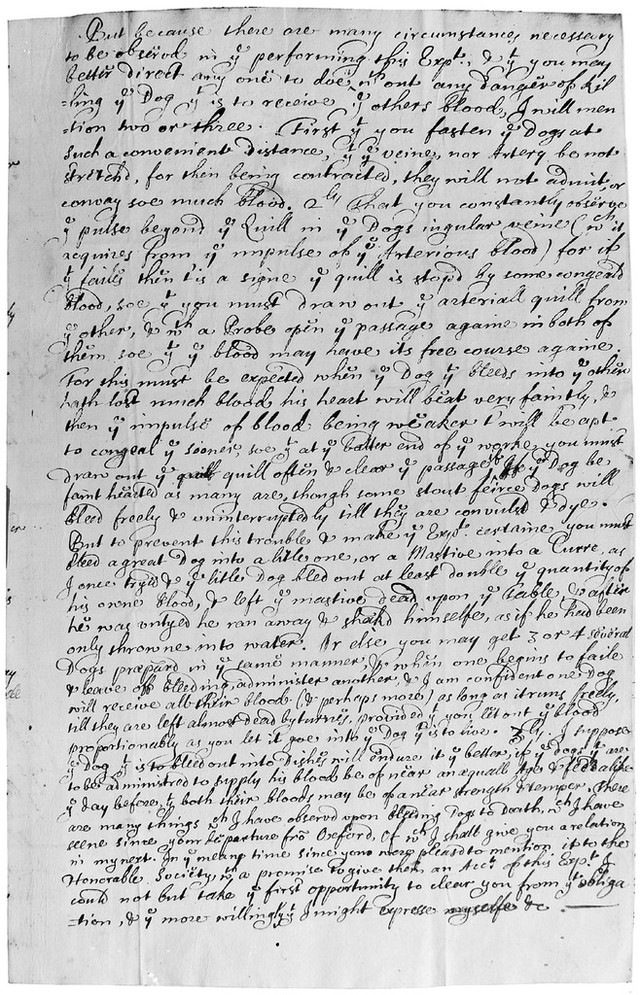 But because there are many circumstances necessary
to be observd in yͤ performing this Expᵗ, & yᵗ you may
better direct any one to doe it wᵗʰout any danger of kil
=ling yͤ Dog yᵗ is to receive yͤ others blood, I will men
=tion two or three. First yᵗ you fasten yͤ Dogs at
such a convenient distance, yᵗ yͤ veine, nor Artery be not
stretchd, for then being contracted, they will not admit, or
convay soe much blood. 2ˡʸ That you constantly observe
yͤ pulse beyond yͤ Quill in yͤ Dogs iugular veine (wᶜʰ it
acquires from yͤ impulse of yͤ Arterious blood) for if
yᵗ failes then tis a signe yͤ quill is stopd by some congeald
blood, soe yᵗ you must draw out yͤ arteriall quill from
yͤ other, & wᵗʰ a Probe open yͤ passage againe in both of
them, soe yᵗ yͤ blood may have its free course againe.
For this must be expected when yͤ Dog yᵗ bleeds into yͤ other
hath lost much blood, his heart will beat very faintly, &
then yͤ impulse of blood being weaker t'will be apt
to congeal yͤ sooner, soe yᵗ at yͤ latter end of yͤ worke you must
draw out yͤ quill often & clear yͤ passage, if yͤ Dog be
faint hearted as many are, though some stout feirce Dogs will
bleed freely & uninterruptedly till they are convulsd & dye.
But to prevent this trouble & make yͤ Expᵗ certaine you must
bleed a great Dog into a litle one, or a Mastive into a Curre, as
I once tryd & yͤ litle Dog bled out at least double yͤ quantity of
his owne blood, & left yͤ mastive dead upon yͤ table, & after
he was untyed he ran away & shakd himselfe, as if he had been
only throwne into water. Or else you may get 3 or 4 severall
Dogs præpard in yͤ same manner, & when one begins to faile
& leave off bleeding, administer another, & I am confident one Dog
will receive all their blood (& perhaps more) as long as it runs freely,
till they are left almost dead by turns, provided yᵗ you let out yͤ blood
proportionably as you let it goe into yͤ Dog yᵗ is to live. 3ˡʸ. I suppose
yͤ Dog yᵗ is to bleed out into Dishes will endure it yͤ better, if yͤ Dogs yᵗ are
to be administred to supply his blood be of near an equall Age & fed alike
yͤ day before, yᵗ both their bloods may be of a near strength & temper. There
are many things wᶜʰ I have observd upon bleeding Dogs to Death, wᶜʰ I have
seene since your departure fro Oxford, Of wᶜʰ I shall give you a relation
in my next. In yͤ meane time since you were pleasd to mention it to the
Honorable Society, wᵗʰ a promise to give them an Accᵗ of this Expᵗ, I
could not but take yͤ first opportunity to clear you from yᵗ obliga
=tion, & yͤ more willingly yᵗ I might expresse myselfe &c